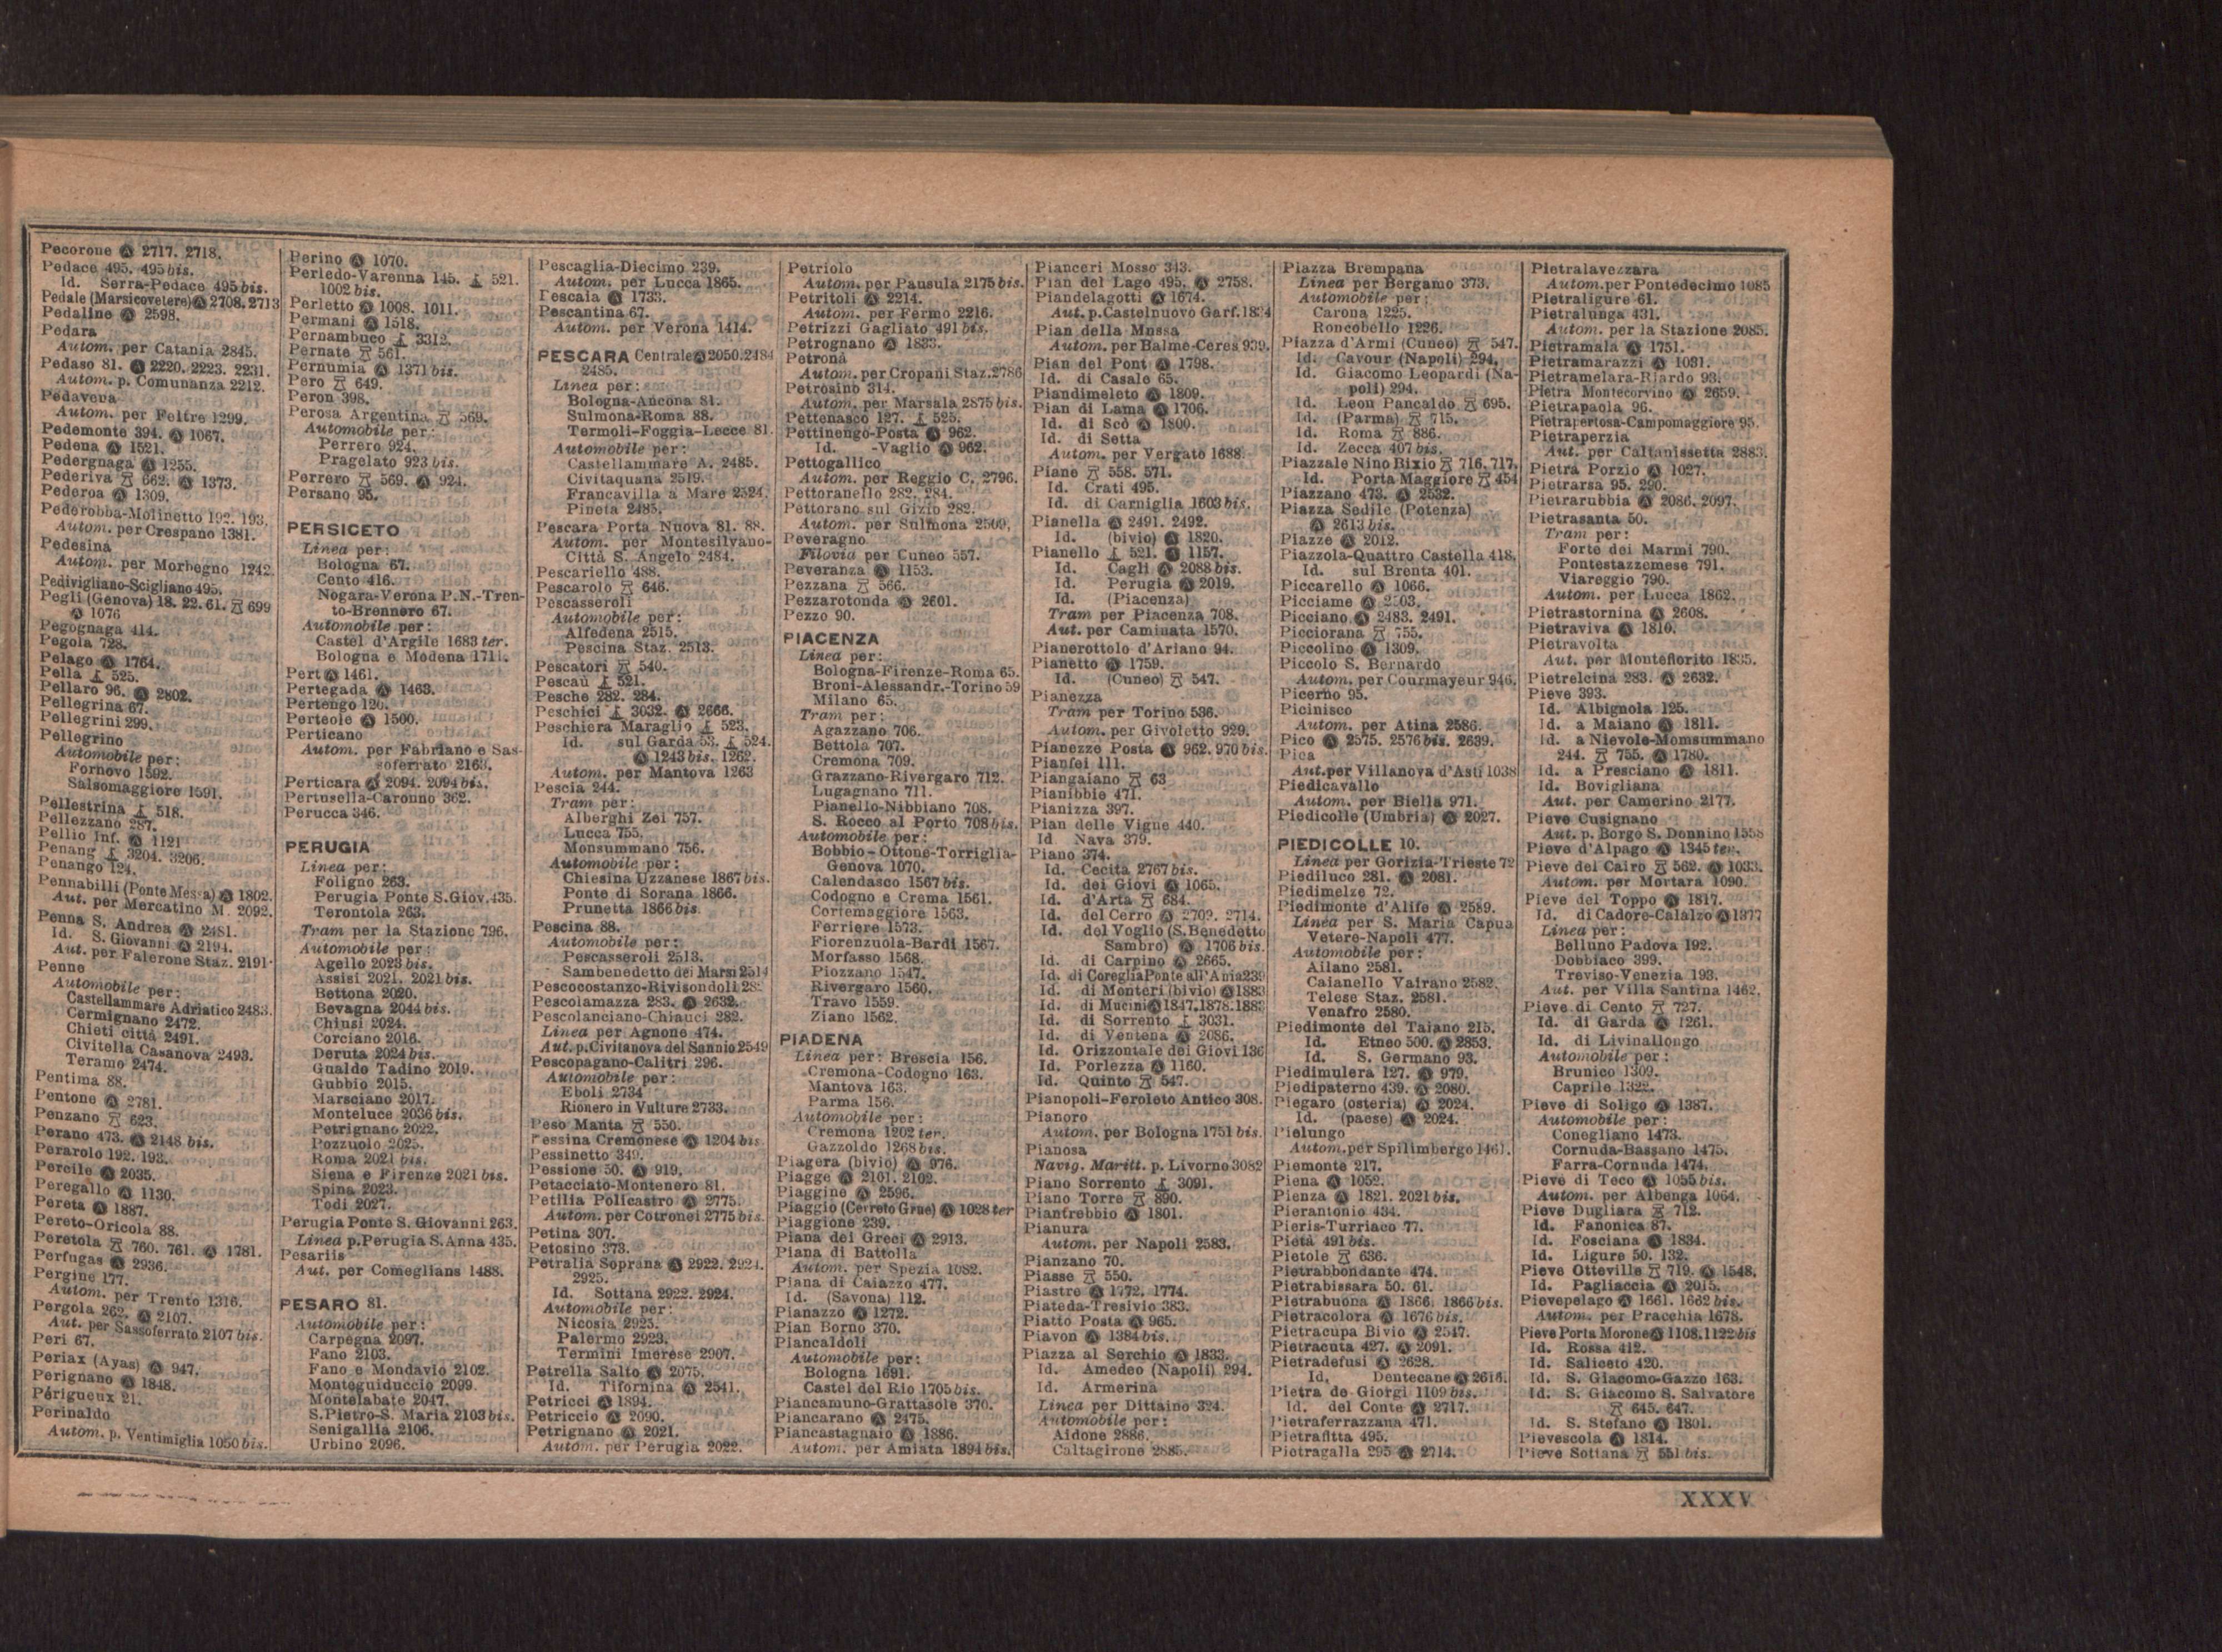 Pecorone 2717. 2718.
Pedace 495. 495 bis.
Id. Serra-Pedace 495 bis.
Pedale (Marsicovetere) 2708. 2713
Pedaline 2598.
Pedara
Autom. per Catania 2845.
Pedaso 81. 2220. 2223. 2231.
Autom. p. Comunanza 2212.
Pedavena
Autom. per Feltre 1299.
Pedemonte 394. 1067.
Pedena 1521.
Pedergnaga 1255.
Pederiva 662. 1373.
Pederoa 1309.
Pederobba-Molinetto 192. 193.
Autom. per Crespano 1381.
Pedesina
Autom. per Morbegno 1242.
Pedivigliano-Scigliano 495.
Pegli (Genova) 18. 22. 61. 699
1076
Pegognaga 414.
Pegola 728.
Pelago 1764.
Pella 525.
Pellaro 96. 2802.
Pellegrina 67.
Pellegrini 299.
Pellegrino
Automobile per:
Fornovo 1592.
Salsomaggiore 1591.
Pellestrina 518.
Pellezzano 287.
Pellio Inf. 1121
Penang 3204. 3206.
Penango 124.
Pennabilli (Ponte Messa) 1802.
Aut. per Mercatino M. 2092.
Penna S. Andrea 2481.
Id. S. Giovanni 2194.
Aut. per Falerone Staz. 2191.
Penne
Automobile per:
Castellammare Adriatico 2483.
Cermignano 2472.
Chieti città 2491.
Civitella Casanova 2493.
Teramo 2474.
Pentima 88.
Pentone 2781.
Penzano 623.
Perano 473. 2148 bis.
Perarolo 192. 193.
Percile 2035.
Peregallo 1130.
Pereta 1887.
Pereto-Oricola 88.
Peretola 760. 761. 1781.
Perfugas 2936.
Pergine 177.
Autom. per Trento 1316.
Pergola 262. 2107.
Aut. per Sassoferrato 2107 bis.
Peri 67.
Periax (Ayas) 947.
Perignano 1848.
Périgueux 21.
Perinaldo
Autom. p. Ventimiglia 1050 bis.
Perino 1070.
Perledo-Varenna 145. 521.
1002 bis.
Perletto 1008. 1011.
Permani 1518.
Pernambuco 3312.
Pernate 561.
Pernumia 1371 bis.
Pero 649.
Peron 398.
Perosa Argentina 569.
Automobile per:
Perrero 924.
Pragelato 923 bis.
Perrero 569. 924.
Persano 95.
PERSICETO
Linea per:
Bologna 67.
Cento 416.
Nogara-Verona P.N.-Tren-
to-Brennero 67.
Automobile per:
Castel d'Argile 1683 ter.
Bologna e Modena 1711.
Pert 1461.
Pertegada 1463.
Pertengo 126.
Perteole 1500.
Perticano
Autom. per Fabriano e Sas-
soferrato 2163.
Perticara 2094. 2094 bis.
Pertusella-Caronno 362.
Perucca 346.
PERUGIA
Linea per:
Foligno 263.
Perugia Ponte S. Giov. 435.
Terontola 263.
Tram per la Stazione 796.
Automobile per:
Agello 2023 bis.
Assisi 2021. 2021 bis.
Bettona 2020.
Bevagna 2044 bis.
Chiusi 2024.
Corciano 2016.
Deruta 2024 bis.
Gualdo Tadino 2019.
Gubbio 2015.
Marsciano 2017.
Monteluce 2036 bis.
Petrignano 2022.
Pozzuolo 2025.
Roma 2021 bis.
Siena e Firenze 2021 bis.
Spina 2023.
Todi 2027.
Perugia Ponte S. Giovanni 263.
Linea p. Perugia S. Anna 435.
Pesariis
Aut. per Comeglians 1488.
PESARO 81.
Automobile per:
Carpegna 2097.
Fano 2103.
Fano e Mondavio 2102.
Monteguiduccio 2099.
Montelabate 2047.
S. Pietro-S. Maria 2103 bis.
Senigallia 2106.
Urbino 2096.
Pescaglia-Diecimo 239.
Autom. per Lucca 1865.
Pescaia 1733.
Pescantina 67.
Autom. per Verona 1414.
PESCARA Centrale 2050. 2484
2485.
Linea per:
Bologna-Ancona 81.
Sulmona-Roma 88.
Termoli-Foggia-Lecce 81.
Automobile per:
Castellammare A. 2485.
Civitaquana 2519.
Francavilla a Mare 2524.
Pineta 2485.
Pescara Porta Nuova 81. 88.
Autom. per Montesilvano-
Città S. Angelo 2484.
Pescariello 488.
Pescarolo 646.
Pescasseroli
Automobile per:
Alfedena 2515.
Pescina Staz. 2513.
Pescatori 540.
Pescaù 521.
Pesche 282. 284.
Peschici 3032. 2666.
Peschiera Maraglio 523.
Id. sul Garda 53. 524.
1243 bis. 1262.
Autom. per Mantova 1263
Pescia 244.
Tram per:
Alberghi Zei 757.
Lucca 755.
Monsummano 756.
Automobile per:
Chiesina Uzzanese 1867 bis.
Ponte di Sorana 1866.
Prunetta 1866 bis.
Pescina 88.
Automobile per:
Pescasseroli 2513.
Sambenedetto dei Marsi 2514
Pescocostanzo-Rivisondoli 282
Pescolamazza 283. 2632.
Pescolanciano-Chiauci 282.
Linea per Agnone 474.
Aut. p. Civitanova del Sannio 2549
Pescopagano-Calitri 296.
Automobile per:
Eboli 2734
Rionero in Vulture 2733.
Peso Manta 550.
Pessina Cremonese 1204 bis
Pessinetto 349.
Pessione 50. 919.
Petacciato-Montenero 81.
Petilia Policastro 2775.
Autom. per Cotronei 2775 bis.
Petina 307.
Petosino 373.
Petralia Soprana 2922. 2924.
2925.
Id. Sottana 2922. 2924.
Automobile per:
Nicosia 2925.
Palermo 2923.
Termini Imerese 2907.
Petrella Salto 2075.
Id. Tifernina 2541.
Petricci 1894.
Petriccio 2090.
Petrignano 2021.
Autom. per Perugia 2022.
Petriolo
Autom. per Pausula 2175 bis.
Petritoli 2214.
Autom. per Fermo 2216.
Petrizzi Gagliato 491 bis.
Petrognano 1833.
Petronà
Autom. per Cropani Staz. 2786
Petrosino 314.
Autom. per Marsala 2875 bis.
Pettenasco 127. 525.
Pettinengo-Posta 962.
Id. -Vaglio 962.
Pettogallico
Autom. per Reggio C. 2796.
Pettoranello 282. 284.
Pettorano sul Gizio 282.
Autom. per Sulmona 2509.
Peveragno
Filovia per Cuneo 557.
Peveranza 1153.
Pezzana 566.
Pezzarotonda 2601.
Pezzo 90.
PIACENZA
Linea per:
Bologna-Firenze-Roma 65.
Broni-Alessandr.-Torino 59
Milano 65.
Tram per:
Agazzano 706.
Bettola 707.
Cremona 709.
Grazzano-Rivergaro 712.
Lugagnano 711.
Pianello-Nibbiano 708.
S. Rocco al Porto 708 bis.
Automobile per:
Bobbio-Ottone-Torriglia-
Genova 1070.
Calendasco 1567 bis.
Codogno e Crema 1561.
Cortemaggiore 1563.
Ferriere 1573.
Fiorenzuola-Bardi 1567.
Morfasso 1568.
Piozzano 1547.
Rivergaro 1560.
Travo 1559.
Ziano 1562.
PIADENA
Linea per: Brescia 156.
Cremona-Codogno 163.
Mantova 163.
Parma 156.
Automobile per:
Cremona 1202 ter.
Gazzoldo 1268 bis.
Piagera (bivio) 976.
Piagge 2101. 2102.
Piaggine 2596.
Piaggio (Cerreto Grue) 1028 ter
Piaggione 239.
Piana dei Greci 2913.
Piana di Battolla
Autom. per Spezia 1082.
Piana di Caiazzo 477.
Id. (Savona) 112.
Pianazzo 1272.
Pian Borno 370.
Piancaldoli
Automobile per:
Bologna 1691.
Castel del Rio 1705 bis.
Piancamuno-Grattasole 370.
Piancarano 2475.
Piancastagnaio 1886.
Autom. per Amiata 1894 bis.
Pianceri Mosso 343.
Pian del Lago 495. 2758.
Piandelagotti 1674.
Aut. p. Castelnuovo Garf. 1834
Pian della Mussa
Autom. per Balme-Ceres 939.
Pian del Pont 1798.
Id. di Casale 65.
Piandimeleto 1809.
Pian di Lama 1706.
Id. di Scò 1800.
Id. di Setta
Autom. per Vergato 1688.
Piane 558. 571.
Id. Crati 495.
Id. di Carniglia 1603 bis.
Pianella 2491. 2492.
Id. (bivio) 1820.
Pianello 521. 1157.
Id. Cagli 2088 bis.
Id. Perugia 2019.
Id. (Piacenza)
Tram per Piacenza 708.
Aut. per Caminata 1570.
Pianerottolo d'Ariano 94.
Pianetto 1759.
Id. (Cuneo) 547.
Pianezza
Tram per Torino 536.
Autom. per Givoletto 929.
Pianezze Posta 962. 970 bis.
Pianfei 111.
Piangaiano 63
Pianibbie 471.
Pianizza 397.
Pian delle Vigne 440.
Id Nava 379.
Piano 374.
Id. Cecita 2767 bis.
Id. dei Giovi 1065.
Id. d'Arta 684.
Id. del Cerro 2702. 2714.
Id. del Voglio (S. Benedetto
Sambro) 1706 bis.
Id. di Carpino 2665.
Id. di Coreglia Ponte all'Ania 239
Id. di Monteri (bivio) 1883
Id. di Mucini 1847. 1878. 1883
Id. di Sorrento 3031.
Id. di Ventena 2086.
Id. Orizzontale dei Giovi 136
Id. Porlezza 1160.
Id. Quinto 547.
Pianopoli-Feroleto Antico 308.
Pianoro
Autom. per Bologna 1751 bis.
Pianosa
Navig. Maritt. p. Livorno 3082
Piano Sorrento 3091.
Piano Torre 890.
Piantrebbio 1801.
Pianura
Autom. per Napoli 2583.
Pianzano 70.
Piasse 550.
Piastre 1772. 1774.
Piateda-Tresivio 383.
Piatto Posta 965.
Piavon 1384 bis.
Piazza al Serchio 1833.
Id. Amedeo (Napoli) 294.
Id. Armerina
Linea per Dittaino 324.
Automobile per:
Aidone 2886.
Caltagirone 2885.
Piazza Brempana
Linea per Bergamo 373.
Automobile per:
Carona 1225.
Roncobello 1226.
Piazza d'Armi (Cuneo) 547.
Id. Cavour (Napoli) 294.
Id. Giacomo Leopardi (Na-
poli) 294.
Id. Leon Pancaldo 695.
Id. (Parma) 715.
Id. Roma 886.
Id. Zecca 407 bis.
Piazzale Nino Bixio 716. 717.
Id. Porta Maggiore 454
Piazzano 473. 2532.
Piazza Sedile (Potenza)
2613 bis.
Piazze 2012.
Piazzola-Quattro Castella 418.
Id. sul Brenta 401.
Piccarello 1066.
Picciame 2503.
Picciano 2483. 2491.
Picciorana 755.
Piccolino 1309.
Piccolo S. Bernardo
Autom. per Courmayeur 946.
Picerno 95.
Picinisco
Autom. per Atina 2586.
Pico 2575. 2576 bis. 2639.
Pica
Aut. per Villanova d'Asti 1038
Piedicavallo
Autom. per Biella 971.
Piedicolle (Umbria) 2027.
PIEDICOLLE 10.
Linea per Gorizia-Trieste 72
Piediluco 281. 2081.
Piedimelze 72.
Piedimonte d'Alife 2589.
Linea per S. Maria Capua
Vetere-Napoli 477.
Automobile per:
Ailano 2581.
Caianello Vairano 2582.
Telese Staz. 2581.
Venafro 2580.
Piedimonte del Taiano 215.
Id. Etneo 500. 2853.
Id. S. Germano 93.
Piedimulera 127. 979.
Piedipaterno 439. 2080.
Piegaro (osteria) 2024.
Id. (paese) 2024.
Pielungo
Autom. per Spilimbergo 1461.
Piemonte 217.
Piena 1052.
Pienza 1821. 2021 bis.
Pierantonio 434.
Pieris-Turriaco 77.
Pietà 491 bis.
Pietole 636.
Pietrabbondante 474.
Pietrabissara 50. 61.
Pietrabuona 1866. 1866 bis.
Pietracolora 1676 bis.
Pietracupa Bivio 2547.
Pietracuta 427. 2091.
Pietradefusi 2628.
Id. Dentecane 2616.
Pietra de Giorgi 1109 bis.
Id. del Conte 2717.
Pietraferrazzana 471.
Pietrafitta 495.
Pietragalla 295 2714.
Pietralavezzara
Autom. per Pontedecimo 1085
Pietraligure 61.
Pietralunga 431.
Autom. per la Stazione 2085.
Pietramala 1751.
Pietramarazzi 1031.
Pietramelara-Riardo 93.
Pietra Montecorvino 2659.
Pietrapaola 96.
Pietrapertosa-Campomaggiore 95.
Pietraperzia
Aut. per Caltanissetta 2883.
Pietra Porzio 1027.
Pietrarsa 95. 290.
Pietrarubbia 2086. 2097.
Pietrasanta 50.
Tram per:
Forte dei Marmi 790.
Pontestazzemese 791.
Viareggio 790.
Autom. per Lucca 1862.
Pietrastornina 2608.
Pietraviva 1810.
Pietravolta
Aut. per Montefiorito 1835.
Pietrelcina 283. 2632.
Pieve 393.
Id. Albignola 125.
Id. a Maiano 1811.
Id. a Nievole-Momsummano
244. 755. 1780.
Id. a Presciano 1811.
Id. Bovigliana
Aut. per Camerino 2177.
Pieve Cusignano
Aut. p. Borgo S. Donnino 1558
Pieve d'Alpago 1345 ter.
Pieve dei Cairo 562. 1033.
Autom. per Mortara 1090.
Pieve del Toppo 1817.
Id. di Cadore-Calalzo 1377
Linea per:
Belluno Padova 192.
Dobbiaco 399.
Treviso-Venezia 193.
Aut. per Villa Santina 1462.
Pieve di Cento 727.
Id. di Garda 1261.
Id. di Livinallongo
Automobile per:
Brunico 1309.
Caprile 1322.
Pieve di Soligo 1387.
Automobile per:
Conegliano 1473.
Cornuda-Bassano 1475.
Farra-Cornuda 1474.
Pieve di Teco 1055 bis.
Autom. per Albenga 1064.
Pieve Dugliara 712.
Id. Fanonica 87.
Id. Fosciana 1834.
Id. Ligure 50. 132.
Pieve Otteville 719. 1548.
Id. Pagliaccia 2015.
Pievepelago 1661. 1662 bis.
Autom. per Pracchia 1678.
Pieve Porta Morone 1108. 1122 bis
Id. Rossa 412.
Id. Saliceto 420.
Id. S. Giacomo-Gazzo 163.
Id. S. Giacomo S. Salvatore
645. 647.
Id. S. Stefano 1801.
Pievescola 1814.
Pieve Sottana 551 bis.
XXXV